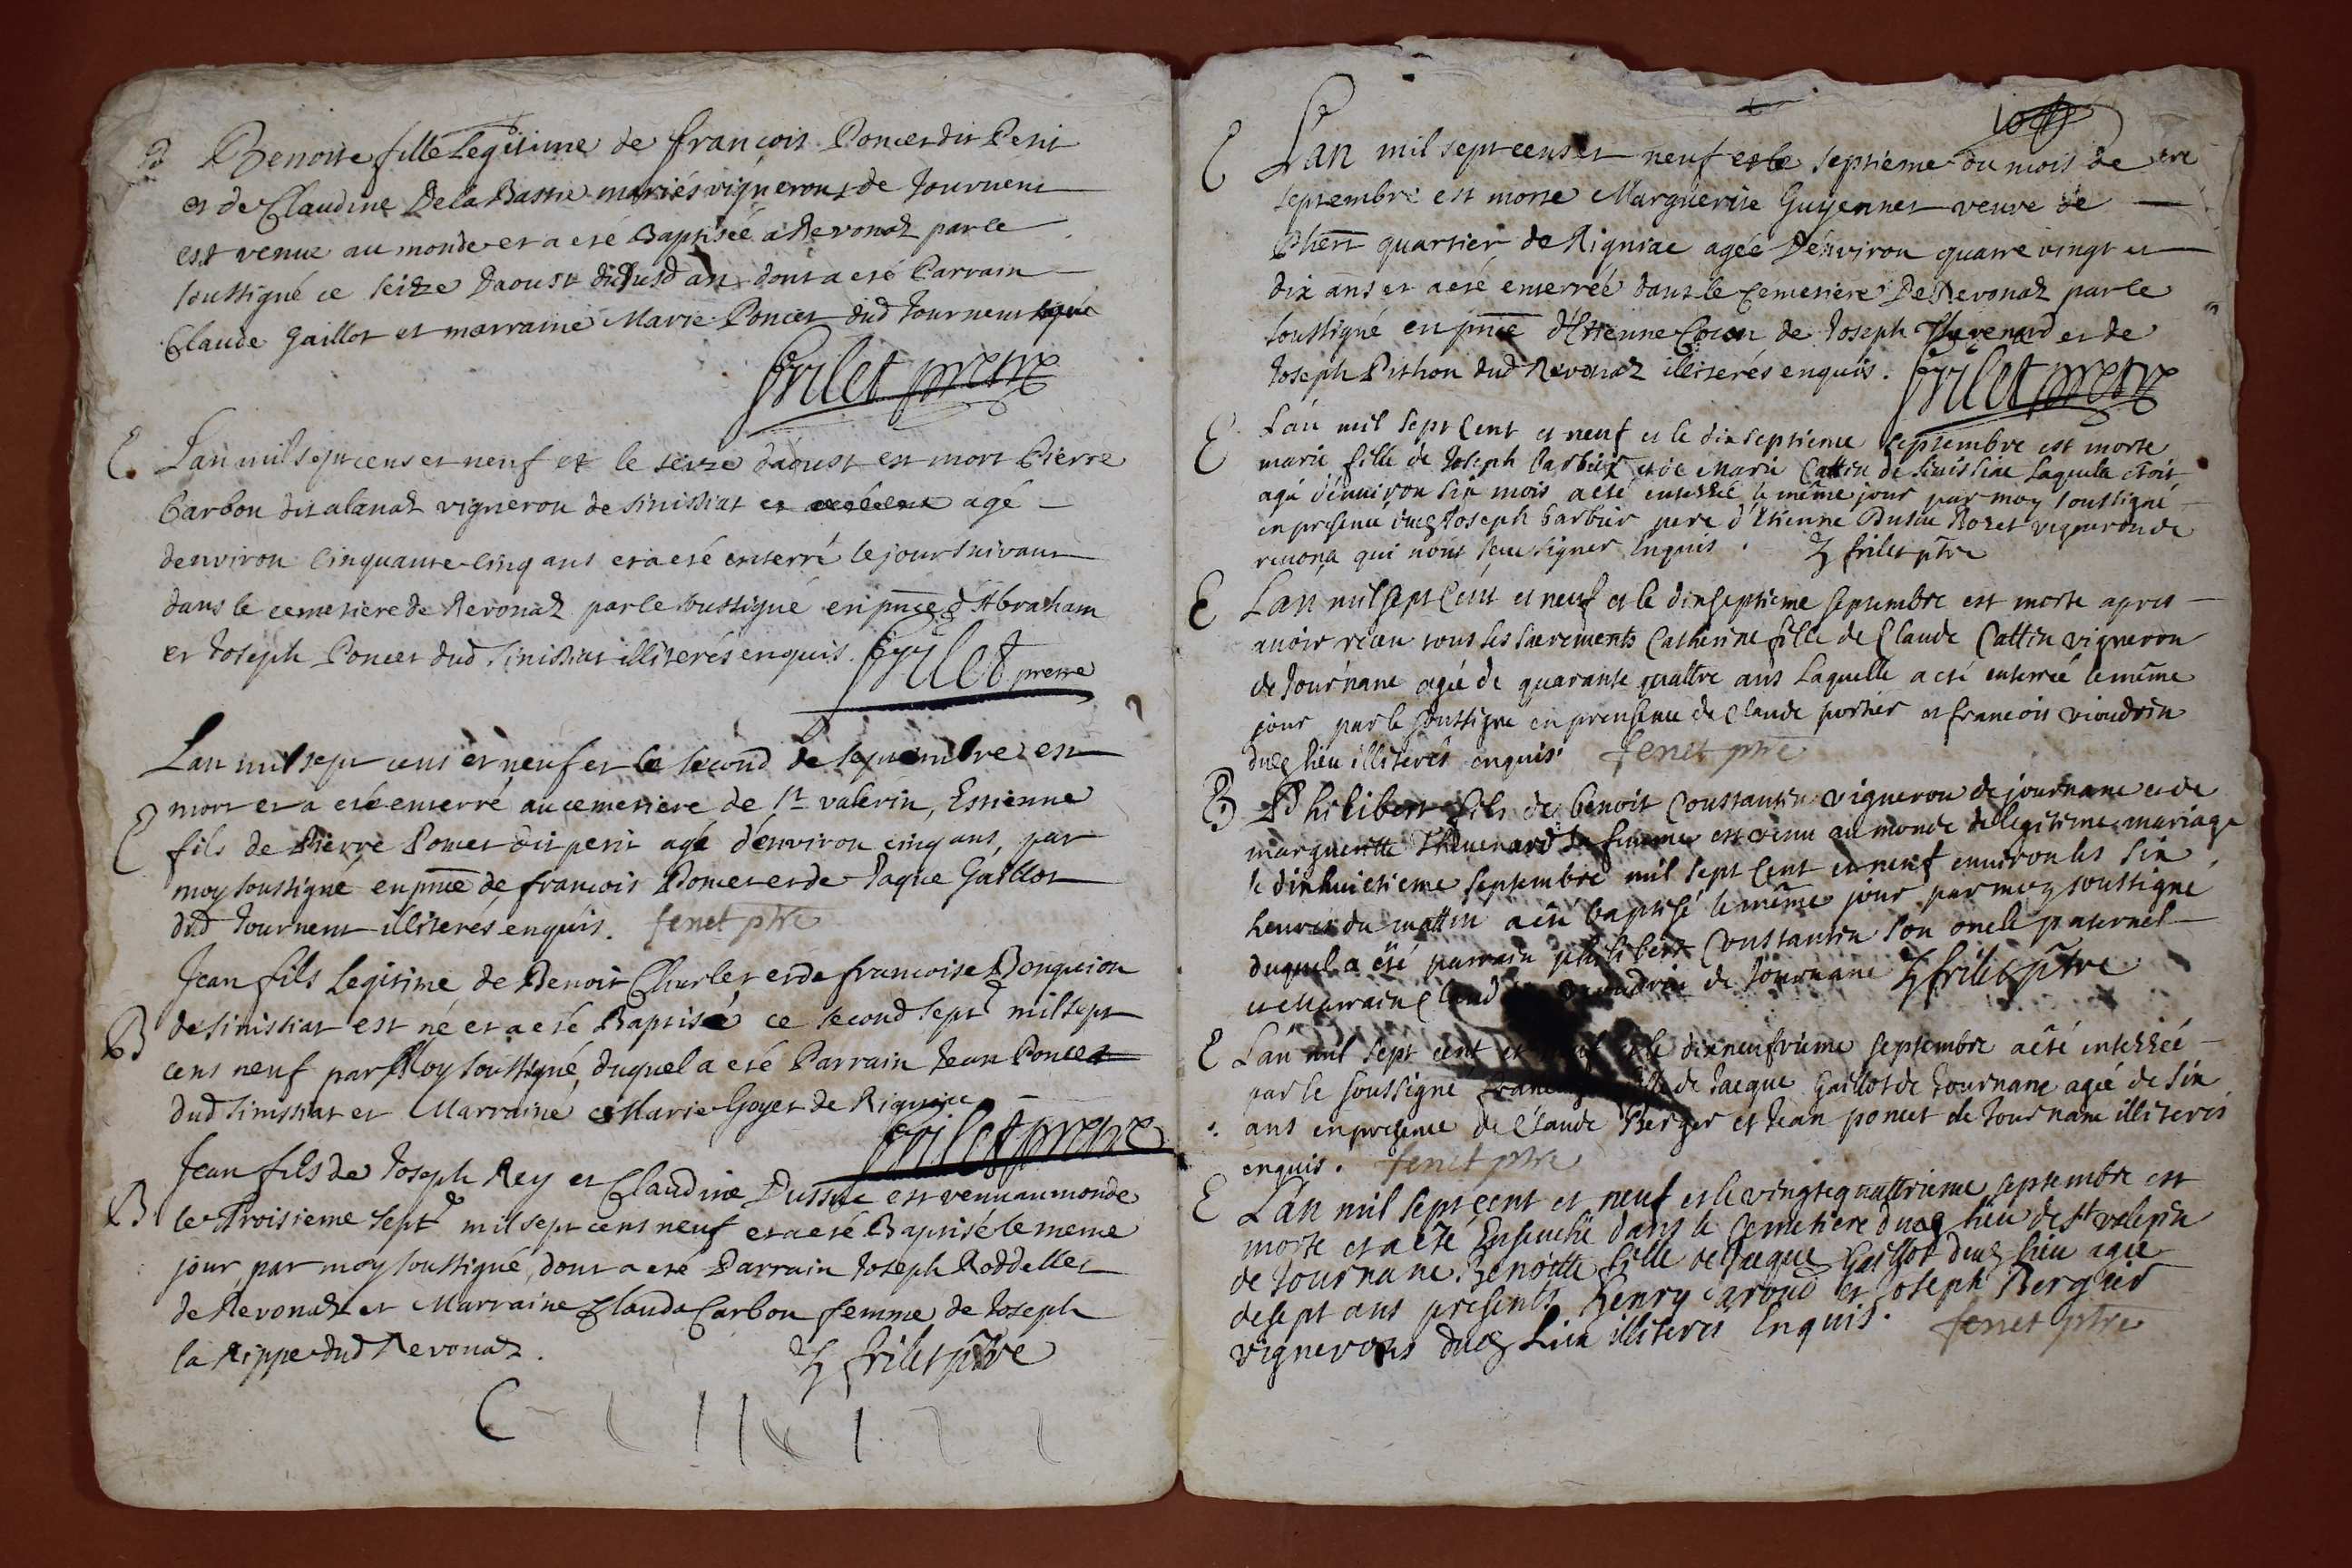 B Benoite fille Legitime de françois Poncet dit Petit
et de Claudine De la Bastie mariés vignerons de Tournent
est venue au monde et a eté Baptisée a Revonaz par le
soussigné ce seize Daoust dud an dont a eté Parrain
Claude Gaillot et marraine Marie Poncet dud Tournent
frilet pretre
E. Lan mil sept cens et neuf et le seize d'aoust est mort Pierre
Carbon dit alanaz vigneron de sinissiat et agé
denviron Cinquante cinq ans et a eté enterré le jour suivant
dans le cemetiere de Revonaz par le soussigné en pnce d'Abraham
et Joseph Poncet dud sinissiat illiterés enquis.
frilet pretre
Lan mil sept cens et neuf et le second de septembre est
E mort et a eté enterré au cemetiere de St valerin, Estienne
fils de Pierre Poncet dit petit agé d'environ cinq ans, par
moy soussigné en pnce de françois Poncet et de Jaque Gaillot
dud Tournent illiterés enquis. fenet ptre
Jean fils Legitime de Benoit Charlet et de francoise Bonguion
B de sinissiat est né et a eté Baptisé ce second Septe mil sept
cens neuf par Moy soussigné, duquel a eté Parrain Jean Poncet
dud sinissiat et Marraine Marie Goyet de Rigniac
frilet pretre
Jean fils de Joseph Rey et Claudine Dussuc est venu au monde
B le Troisieme Septe mil sept cens neuf et a eté Baptisé le meme
jour, par moy soussigné, dont a eté Parrain Joseph Roddellet
de Revonaz et Marraine Clauda Carbon femme de Joseph
la Rippe dud Revonaz. frilet ptre
E Lan mil sept cens et neuf et le septieme du mois de
septembre est morte Marguerite Guyennet veuve de
Phert quartier de Rigniac agée D'environ quatre vingt et
dix ans et a eté enterrée dans le Cemetiere De Revonaz par le
soussigné en pnce d'Etienne de Joseph Thevenard et de
Joseph Pithon dud Revonaz illiterés enquis. frilet pretre
E Lan mil sept Cent et neuf et le dixseptieme septembre est morte
marie fille de Joseph Barbier et de Marie Cattin de sinissiac laquelle etoit
agé d'enuiron six mois a eté enterrée le même jour par moy soussigné
en presence dudq Joseph barbier pere d'Etienne Rozet vigneron de
reuona qui n'ont sceu signer Enquis. frilet ptre
E Lan mil sept Cent et neuf et le dixseptieme septembre est morte apres
auoir receu tous les sacrements Catherine fille de Claude Cattin vigneron
de Tournane agée de quarante quattre ans Laquelle a eté enterrée le même
jour par le soussigné en presence de Claude portier et francois vioudrin
dudq lieu illiterés enquis. fenet ptre
B Philibert fils de benoit Constantin vigneron de journane et de
marguerite Theuenard sa femme est venu au monde de legitime mariage
le dixhuictieme septembre mil sept Cent et neuf enuiron les six
heures du mattin a eté baptisé le même jour par moy soussigné
duquel a été parrain philibert Constantin son oncle paternel
et Marraine de Tournane frilet ptre
E Lan mil sept cent et neuf et le dixneufvieme septembre a eté enterrée
par le soussigné fille de Jacque Gaillot de Tournane agée de six
ans en presence de Claude Berger et Jean poncet de Tournane illiterés
enquis. fenet ptre
E Lan mil sept cent et neuf et le vingtequattrieme septembre est
morte et a eté Enseuelie dans le Cemetiere dudq lieu de st valerin
de Tournane. Benoitte fille de Jacque Gaillot dudq lieu agée
de sept ans presents henry caroud et Joseph Bergier
vignerons dudq Lieu illiterés Enquis. fenet ptre